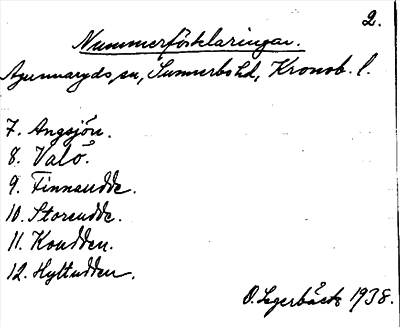 2.
Nummerförklaringar.
Agunnaryds sn, Sunnerbo hd, Kronob. l.
7. Angsjön.
8. Valö.
9. Finnaudde.
10. Storeudde.
11. Koudden.
12. Hyltudden.
O. Lagerbäck 1938.